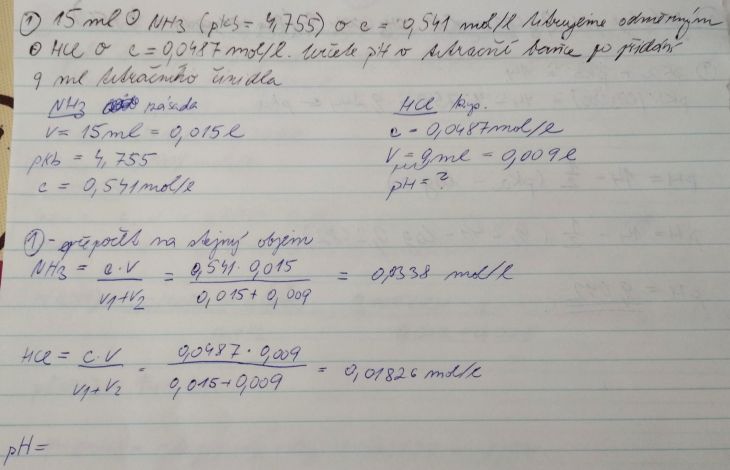 ① 15 ml NH3 (pkb = 4,755) o c = 0,541 mol/l titrujeme odměrným
HCl o c = 0,0487 mol/l. Určete pH v titrační baňce po přidání
9 ml titračního činidla
NH3 zásada
V = 15 ml = 0,015 l
pkb = 4,755
c = 0,541 mol/l
HCl kys.
c = 0,0487 mol/l
V = 9 ml = 0,009 l
pH = ?
① - přepočet na stejný objem
NH3 = c·V / V1+V2 = 0,541 · 0,015 / 0,015 + 0,009 = 0,338 mol/l
HCl = c·V / V1+V2 = 0,0487 · 0,009 / 0,015 + 0,009 = 0,01826 mol/l
pH =